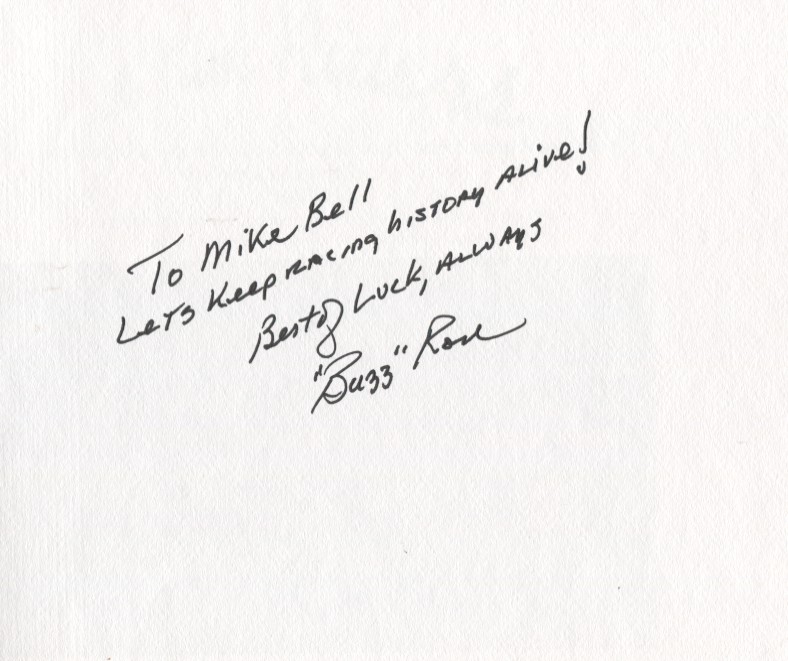 To Mike Bell
LeTs Keep RACing hiSTORy ALive!
Best of Luck, ALWAYS
"Buzz" Rose